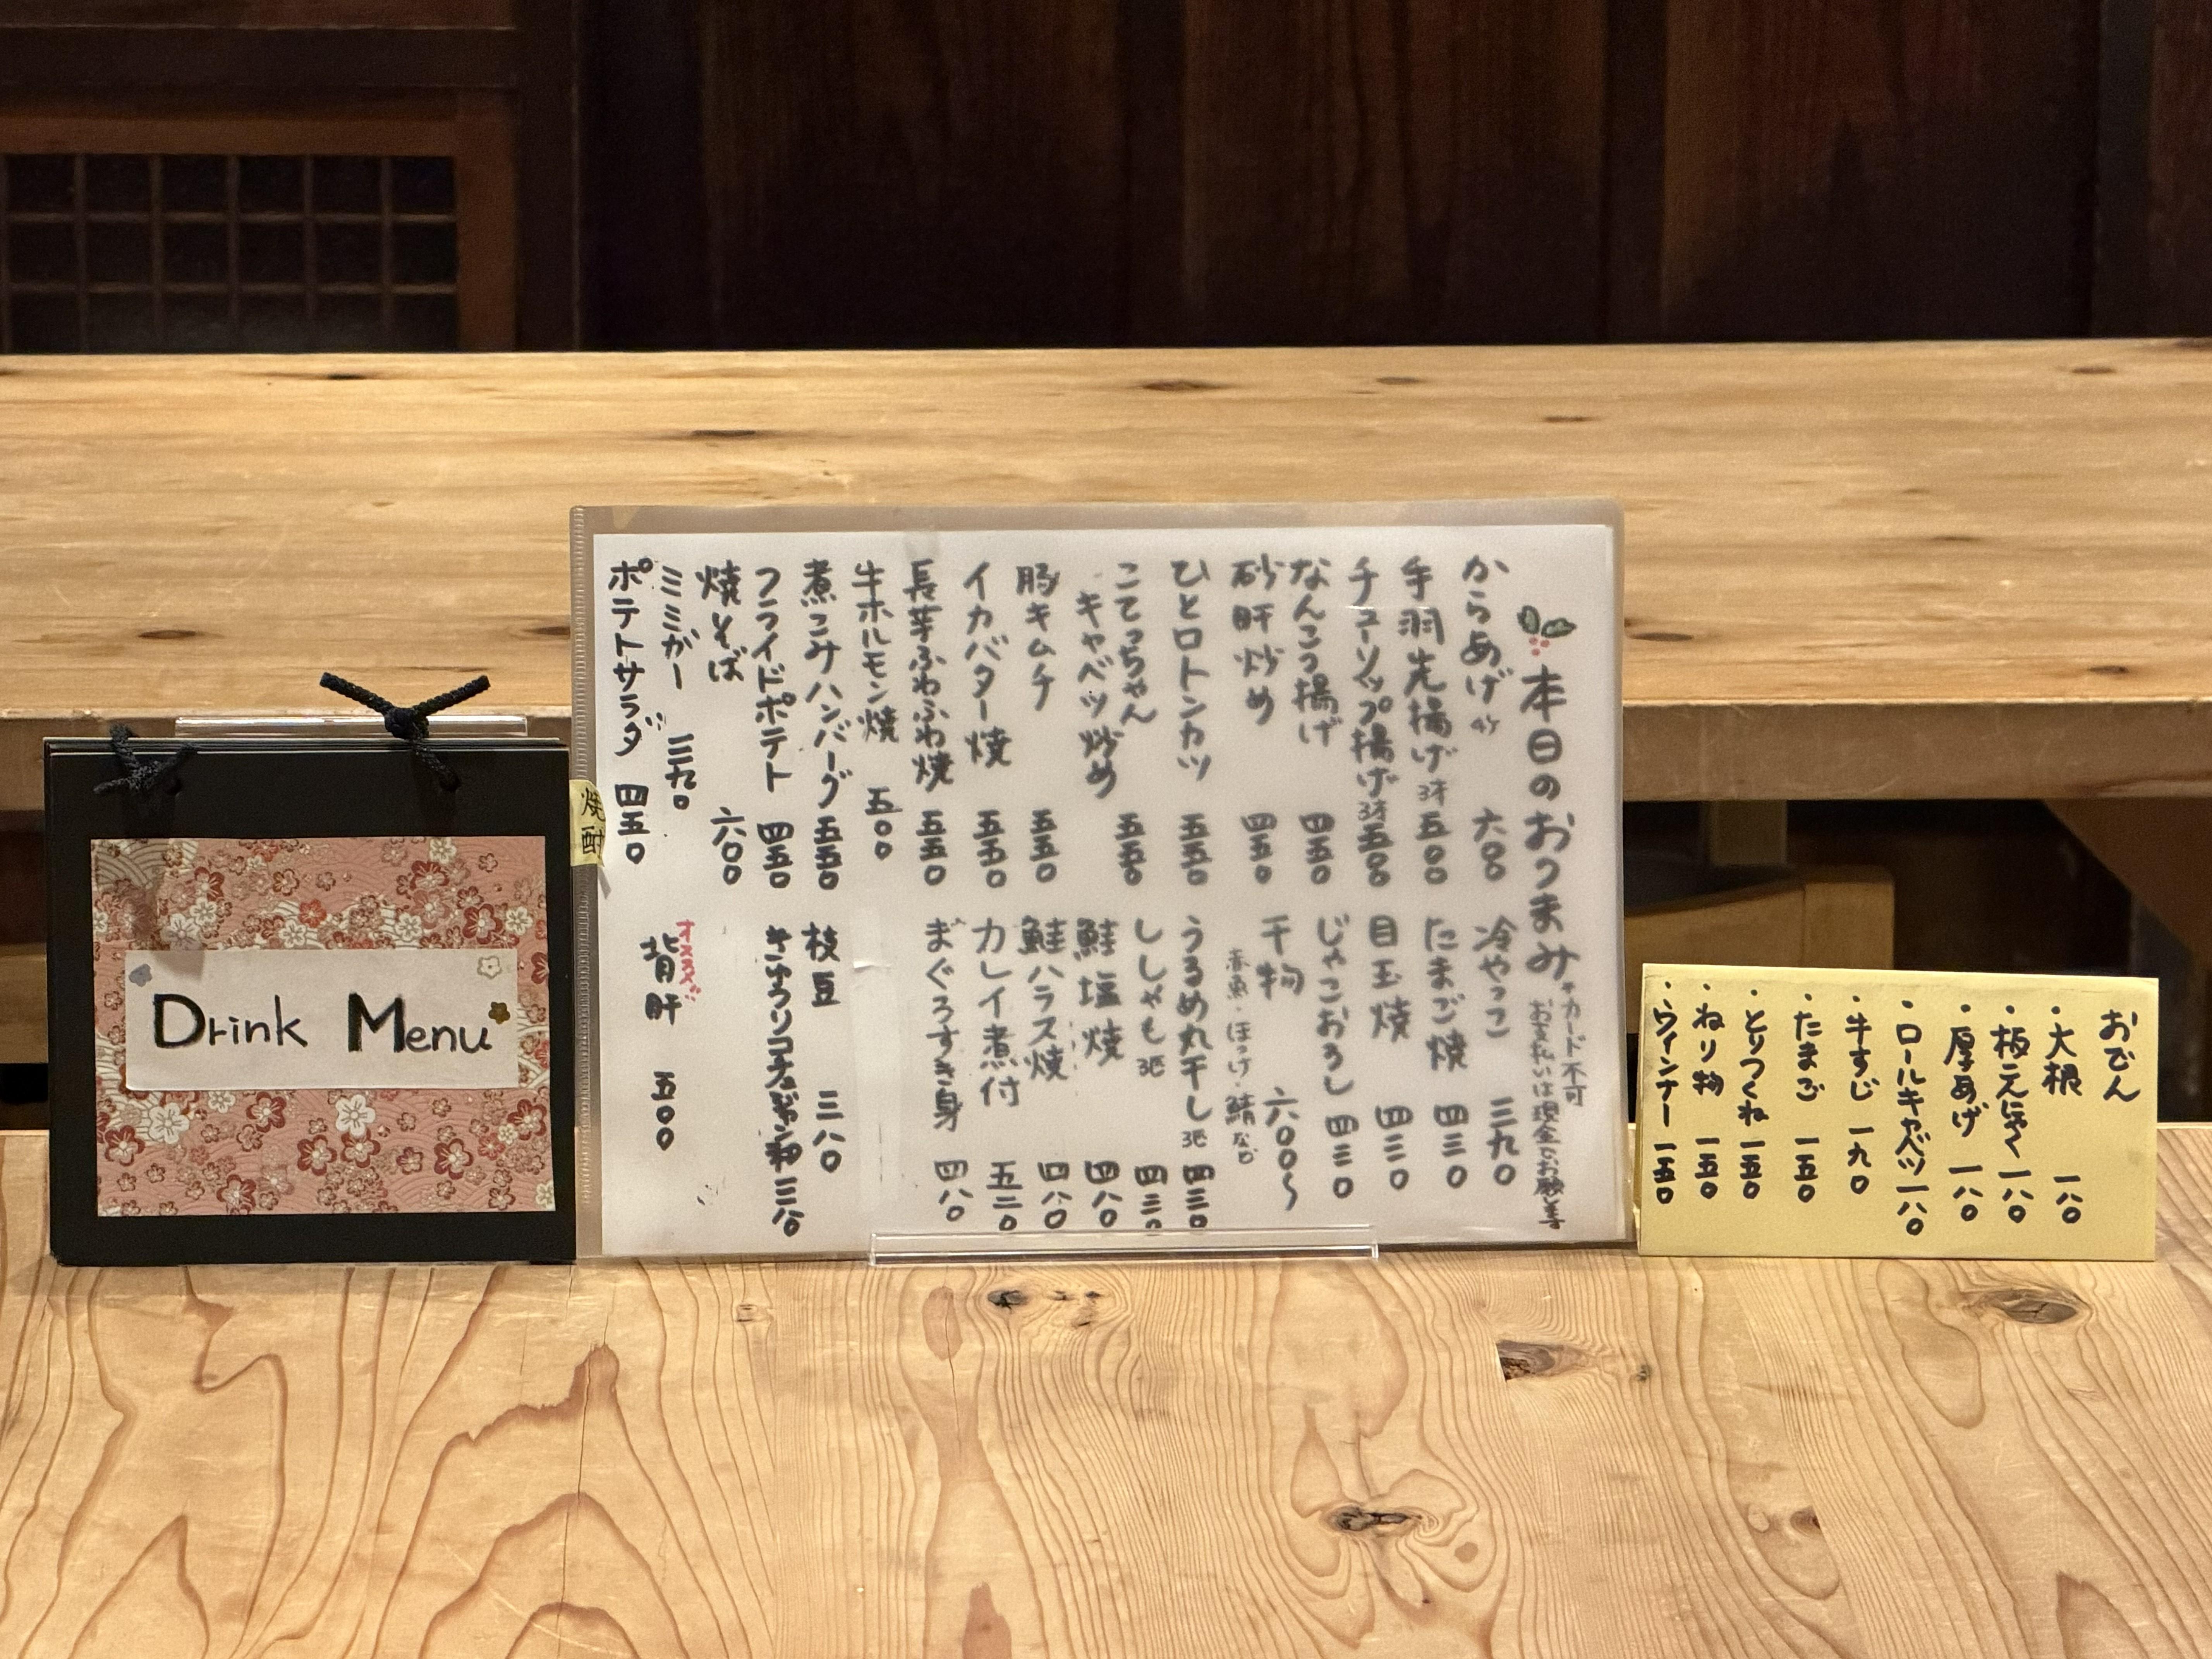 Drink Menu
焼酎
本日のおつまみ
・カード不可
お支払いは現金でお願い
からあげ 4ケ 六〇〇
手羽先揚げ 3本 五〇〇
チューリップ揚げ 3本 五〇〇
なんこつ揚げ 四五〇
砂肝炒め 四五〇
ひとロトンカツ 五五〇
こてっちゃん
キャベツ炒め 五五〇
豚キムチ 五五〇
イカバター焼 五五〇
長芋ふわふわ焼 五五〇
牛ホルモン焼 五〇〇
煮こみハンバーグ 五五〇
フライドポテト 四五〇
焼そば 六〇〇
ミミガー 三九〇
ポテトサラダ 四五〇
冷やっこ 三九〇
たまご焼 四三〇
目玉焼 四三〇
じゃこおろし 四三〇
干物 六〇〇〜
赤魚・ほっけ・鯖など
うるめ丸干し 3尾 四三〇
ししゃも 3尾 四三〇
鮭塩焼 四八〇
鮭ハラス焼 四八〇
カレイ煮付 五二〇
まぐろすき身 四八〇
枝豆 三八〇
きゅうりコチュジャン和 三八〇
オススメ!!
背肝 五〇〇
おでん
・大根 一八〇
・板こんにゃく 一八〇
・厚あげ 一八〇
・ロールキャベツ 一八〇
・牛すじ 一九〇
・たまご 一五〇
・とりつくね 一五〇
・ねり物 一五〇
・ウインナー 一五〇